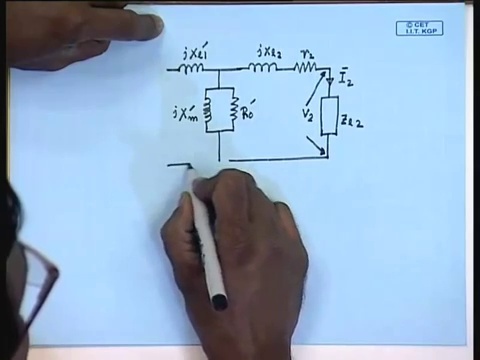 © CET
I.I.T. KGP
jXl1′ jXl2 r2
Ī2
jXm′ R0′ V2 Zl2